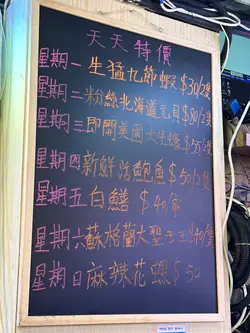 天天特價
星期一生猛九節蝦$30/3隻
星期二粉絲北海道元貝$80/2隻
星期三即開美國大生蠔$55/2隻
星期四新鮮活鮑魚$50/3隻
星期五白鱔$40/窜
星期六蘇格蘭大聖子王$90/隻
星期日麻辣花螺$50